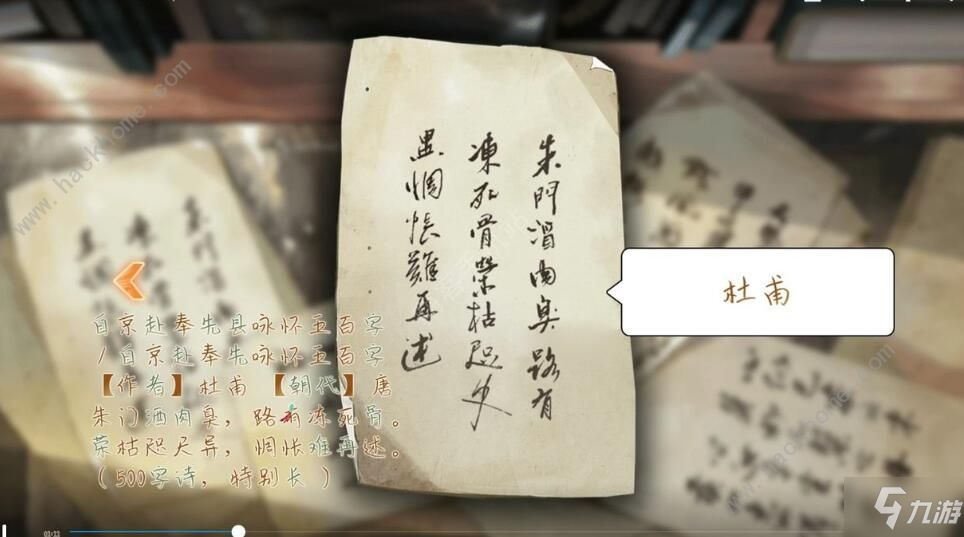 朱門酒肉臭路有
凍死骨榮枯咫尺
異惆悵難再述
杜甫
自京赴奉先县咏怀五百字
/自京赴奉先咏怀五百字
【作者】杜甫 【朝代】唐
朱门酒肉臭，路有冻死骨。
荣枯咫尺异，惆怅难再述。
（500字诗，特别长）
www.hackhome.com
九游